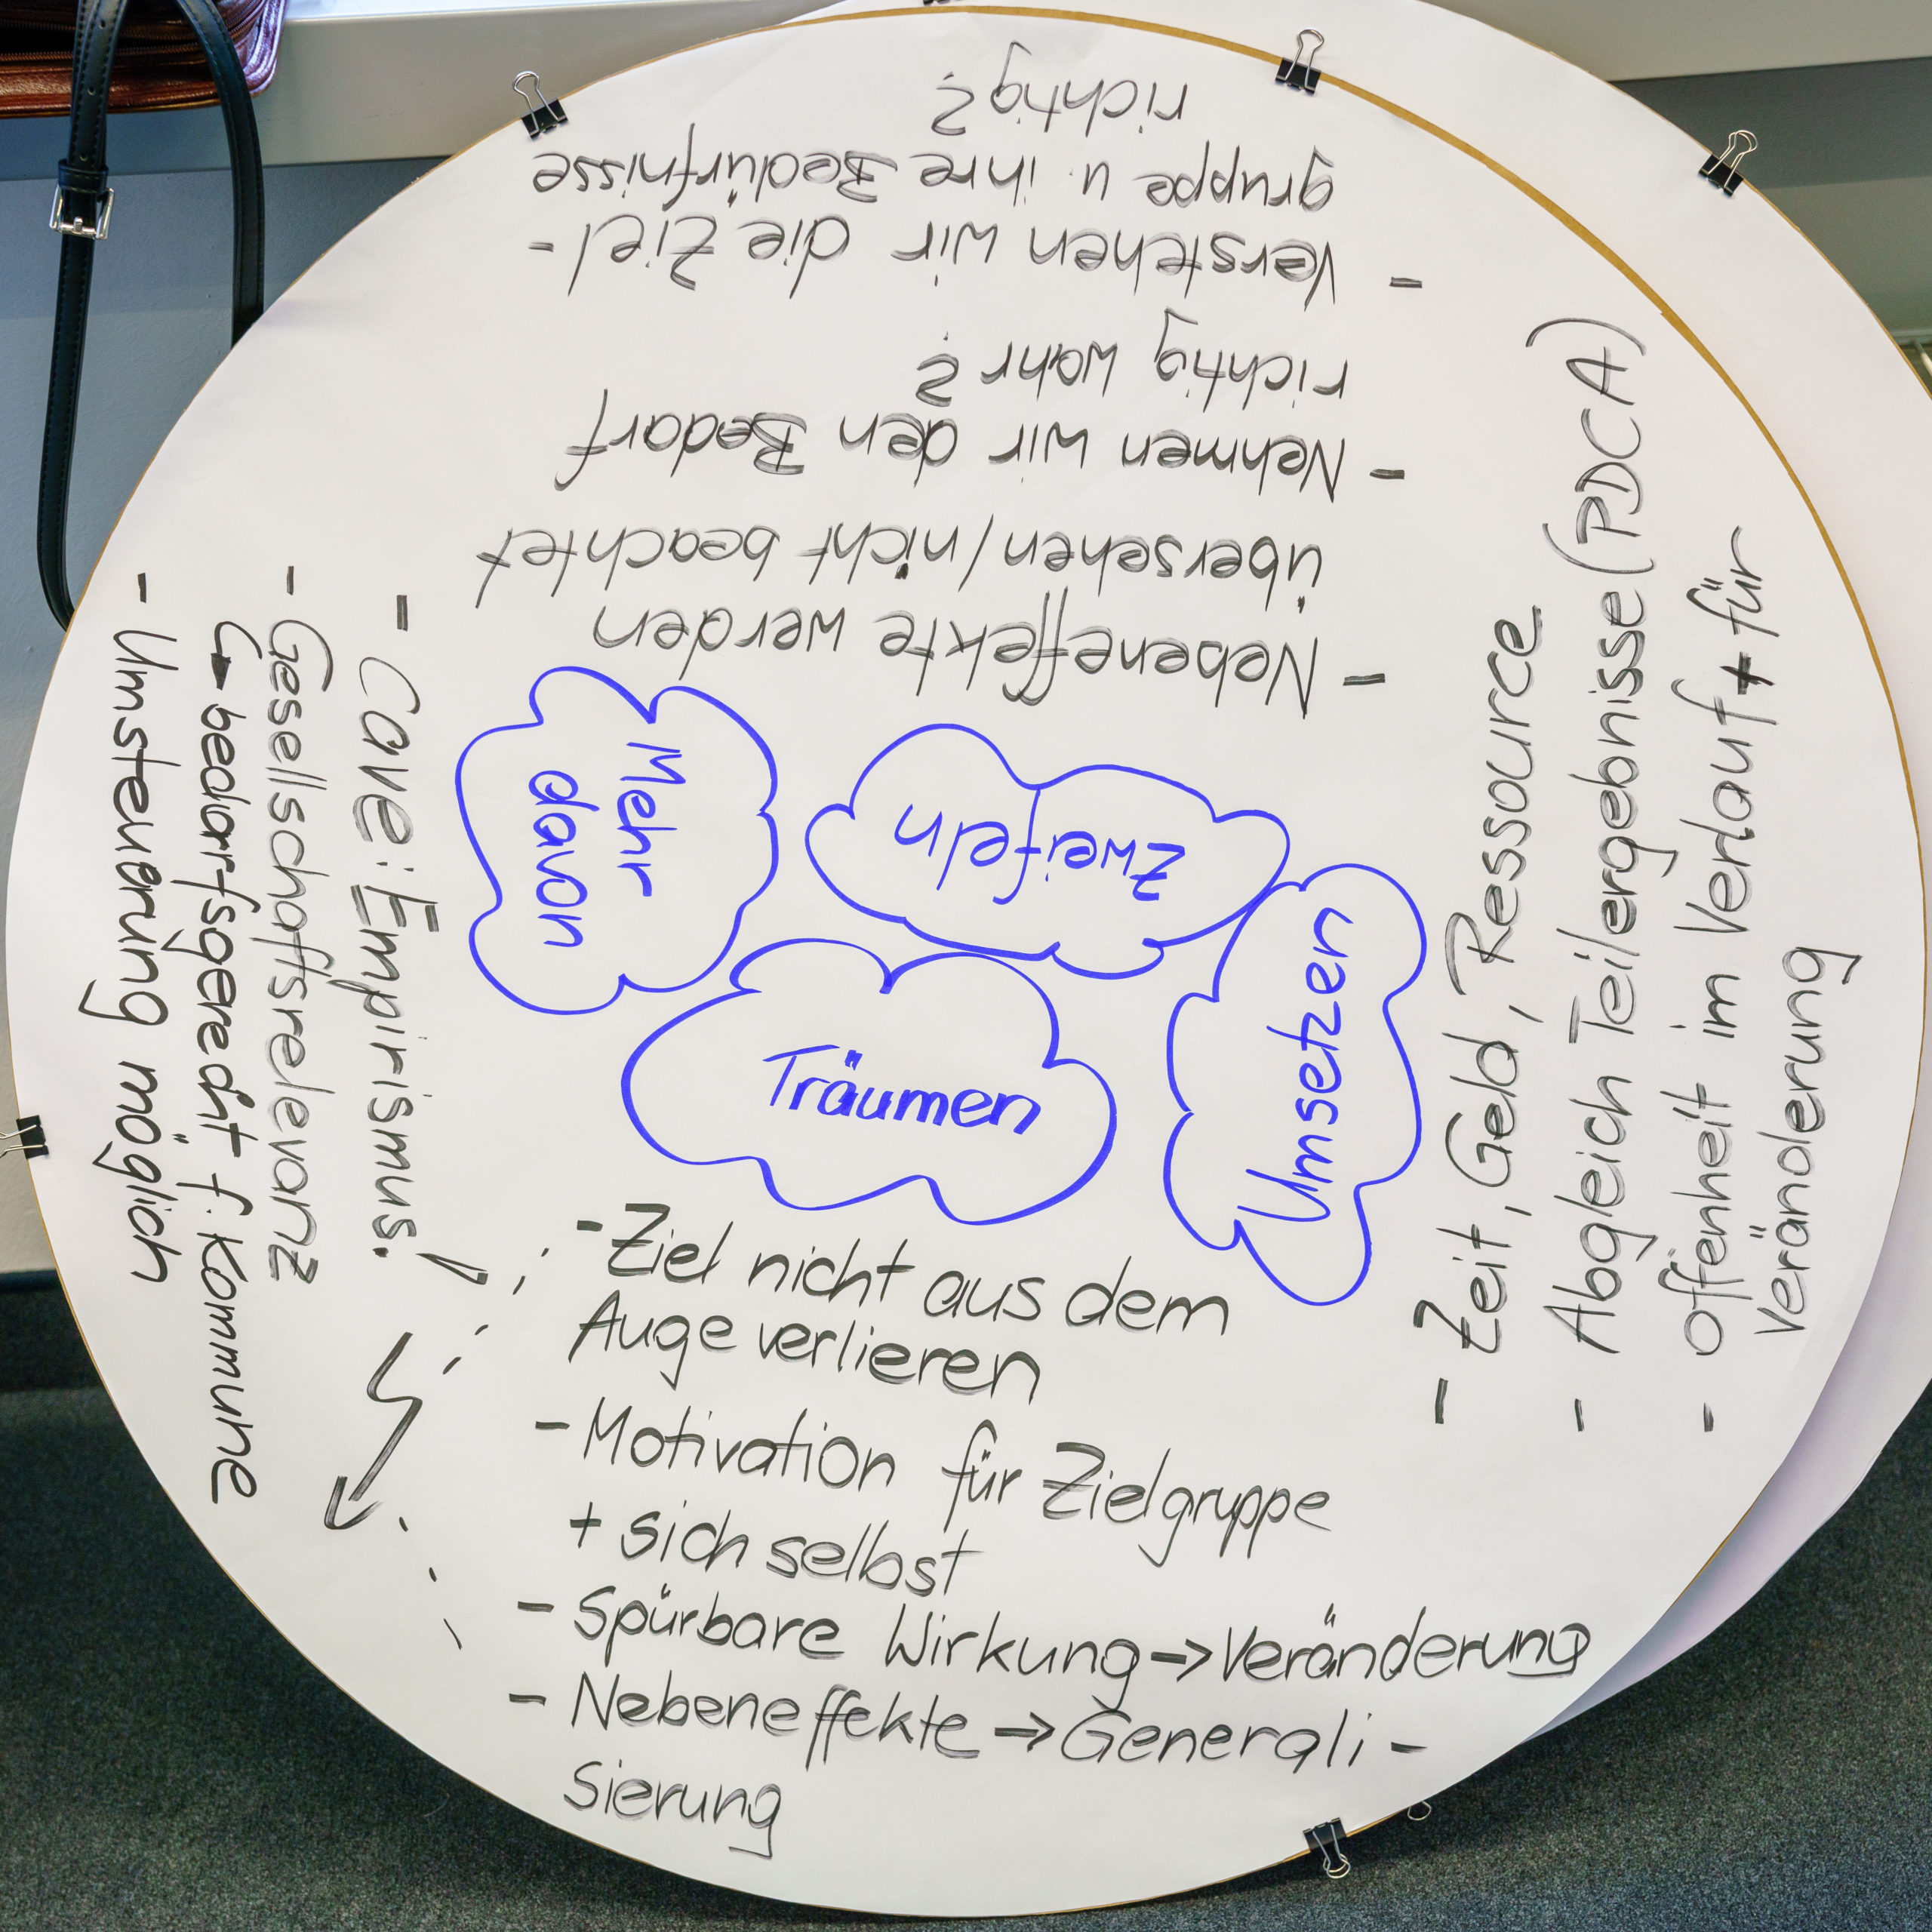 Träumen
- Ziel nicht aus dem
Auge verlieren
- Motivation für Zielgruppe
+ sich selbst
- Spürbare Wirkung → Veränderung
- Nebeneffekte → Generali-
sierung
Mehr
davon
- Cave: Empirismus!
- Gesellschaftsrelevanz
↳ bedarfsgerecht f. Kommune
- Umsteuerung möglich
Zweifeln
- Nebeneffekte werden
übersehen/nicht beachtet
- Nehmen wir den Bedarf
richtig wahr?
- Verstehen wir die Ziel-
gruppe u ihre Bedürfnisse
richtig?
Umsetzen
- Zeit, Geld, Ressource
- Abgleich Teilergebnisse (PDCA)
- Offenheit im Verlauf + für
Veränderung